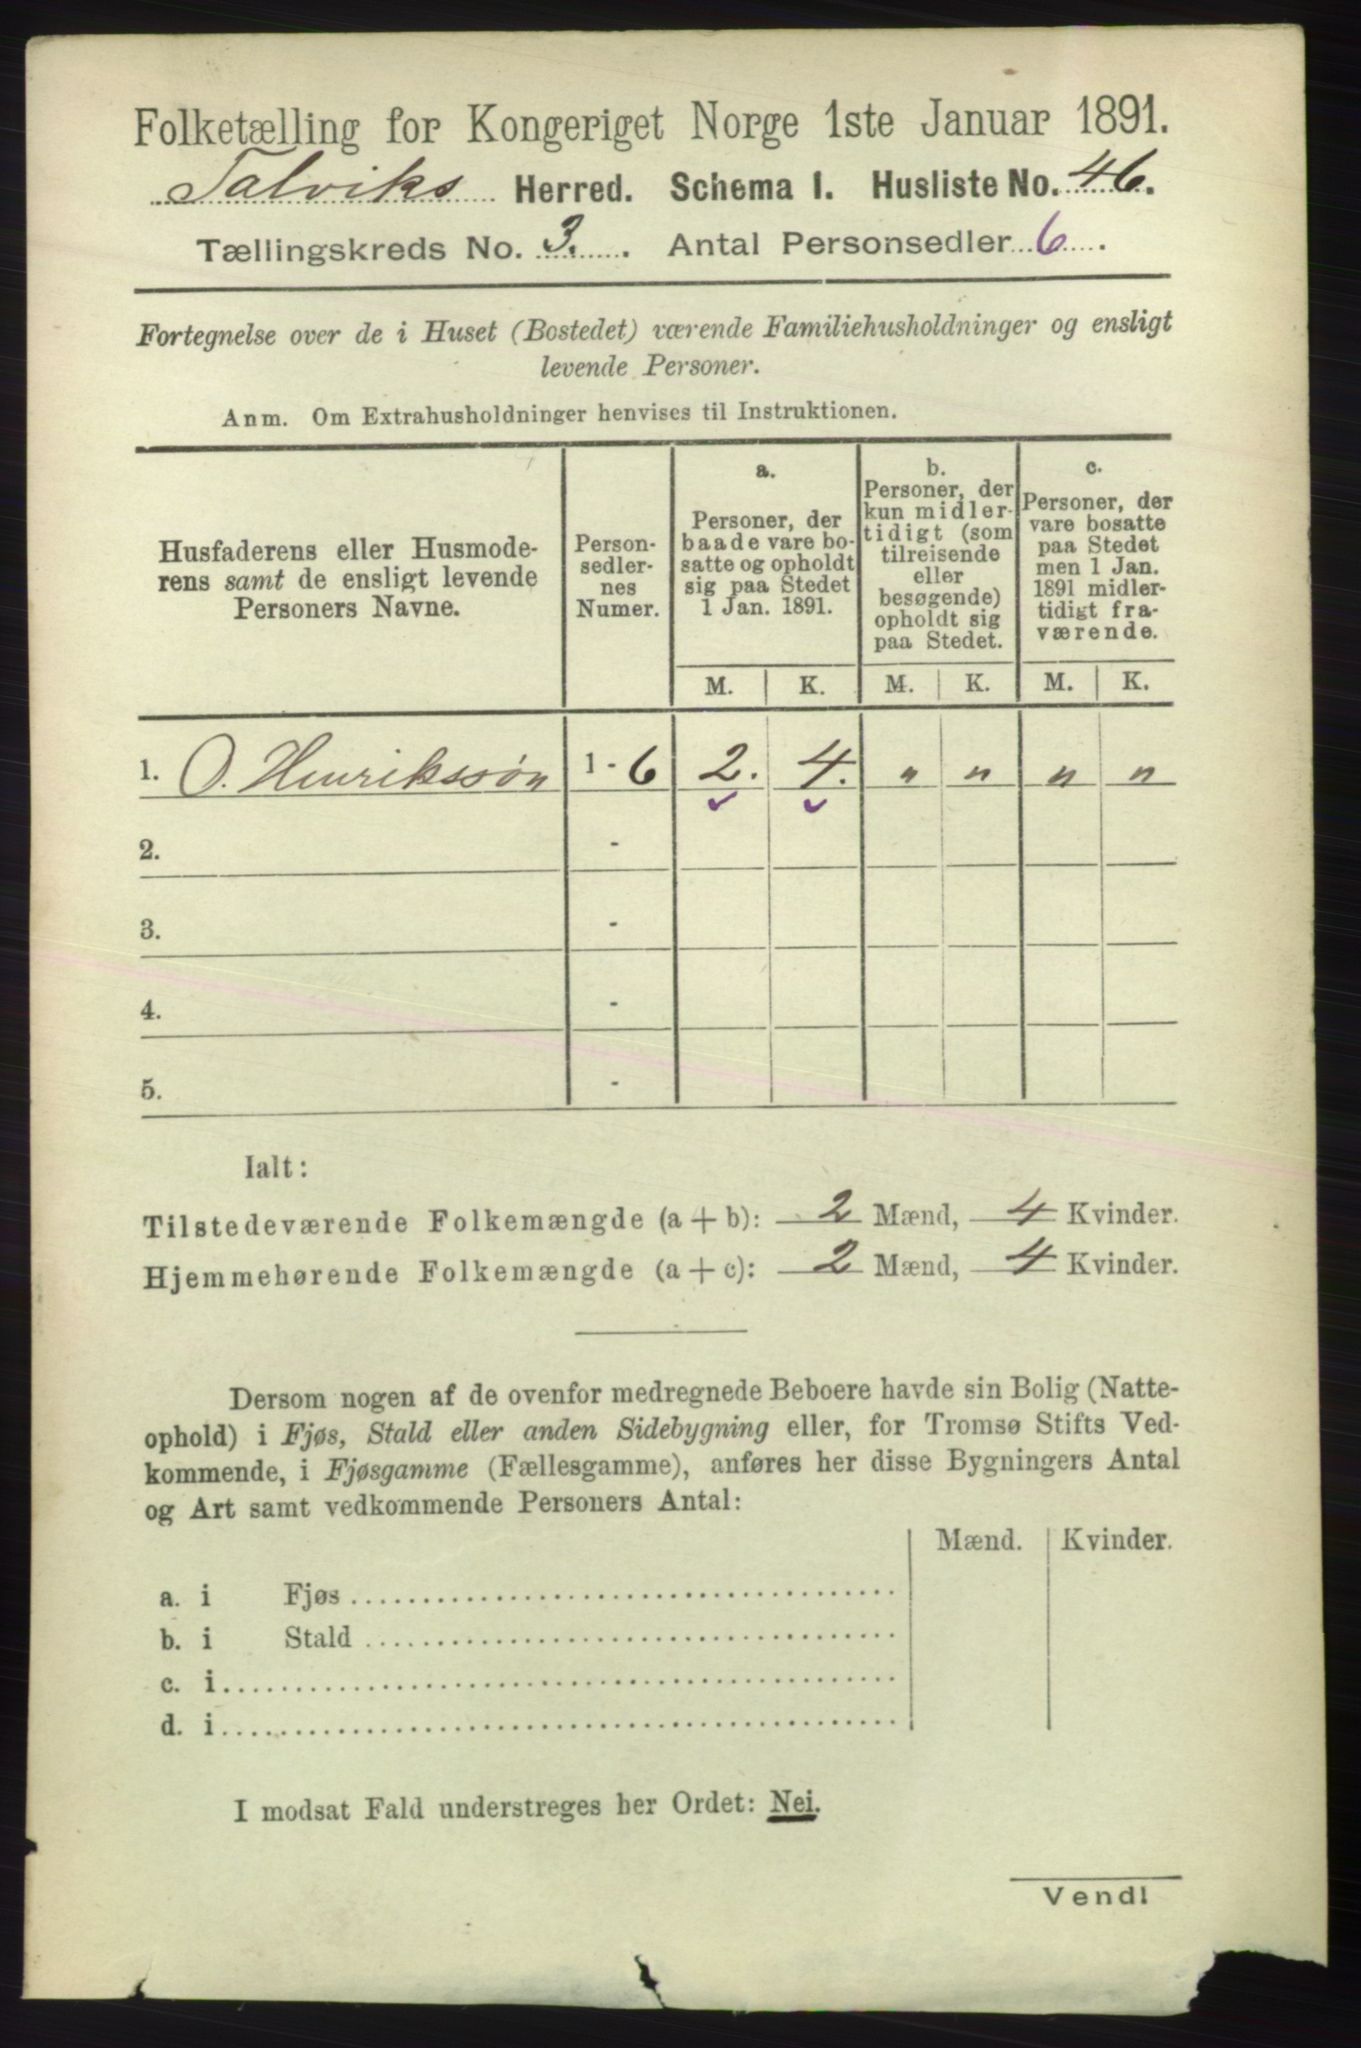 Folketælling for Kongeriget Norge 1ste Januar 1891.
Talviks Herred. Schema I. Husliste No. 46.
Tællingskreds No. 3. . Antal Personsedler 6 .
Fortegnelse over de i Huset (Bostedet) værende Familiehusholdninger og ensligt
levende Personer.
Anm. Om Extrahusholdninger henvises til Instruktionen.
Husfaderens eller Husmode-
rens samt de ensligt levende
Personers Navne.
Person-
sedler-
nes
Numer.
a.
Personer, der
baade vare bo-
satte og opholdt
sig paa Stedet
1 Jan. 1891.
b.
Personer, der
kun midler-
tidigt (som
tilreisende
eller
besøgende)
opholdt sig
paa Stedet.
c.
Personer, der
vare bosatte
paa Stedet
men 1 Jan.
1891 midler-
tidigt fra-
værende.
M. K. M. K. M. K.
1. O. Henrikssøn 1 - 6 2. 4. " " " "
2. -
3. -
4. -
5. -
Ialt:
Tilstedeværende Folkemængde (a + b): 2 Mænd, 4 Kvinder.
Hjemmehørende Folkemængde (a + c): 2 Mænd, 4 Kvinder.
Dersom nogen af de ovenfor medregnede Beboere havde sin Bolig (Natte-
ophold) i Fjøs, Stald eller anden Sidebygning eller, for Tromsø Stifts Ved-
kommende, i Fjøsgamme (Fællesgamme), anføres her disse Bygningers Antal
og Art samt vedkommende Personers Antal:
Mænd. Kvinder.
a. i Fjøs
b. i Stald
c. i
d. i
I modsat Fald understreges her Ordet: Nei.
Vend!